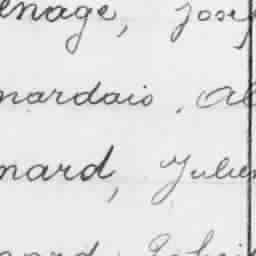 enage, Jose
nardais, Al
nard, Julie